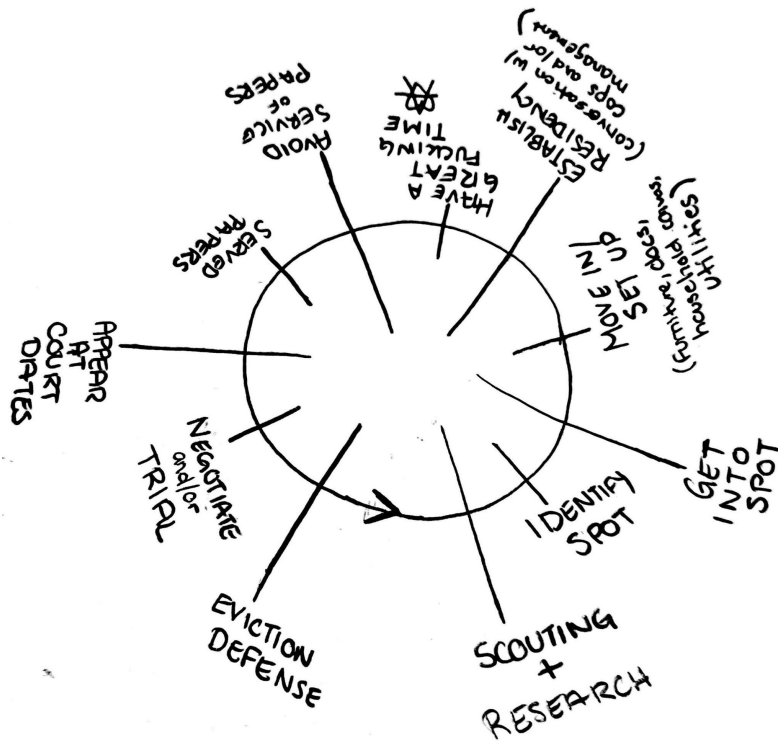 SCOUTING
+
RESEARCH
IDENTIFY
SPOT
GET
INTO
SPOT
MOVE IN/
SET UP
(furniture, docs,
household cans,
utilities)
ESTABLISH
RESIDENCY
(conversation w/
cops and/or
management)
HAVE A
GREAT
FUCKING
TIME
AVOID
SERVICE
OF
PAPERS
SERVED
PAPERS
APPEAR
AT
COURT
DATES
NEGOTIATE
and/or
TRIAL
EVICTION
DEFENSE